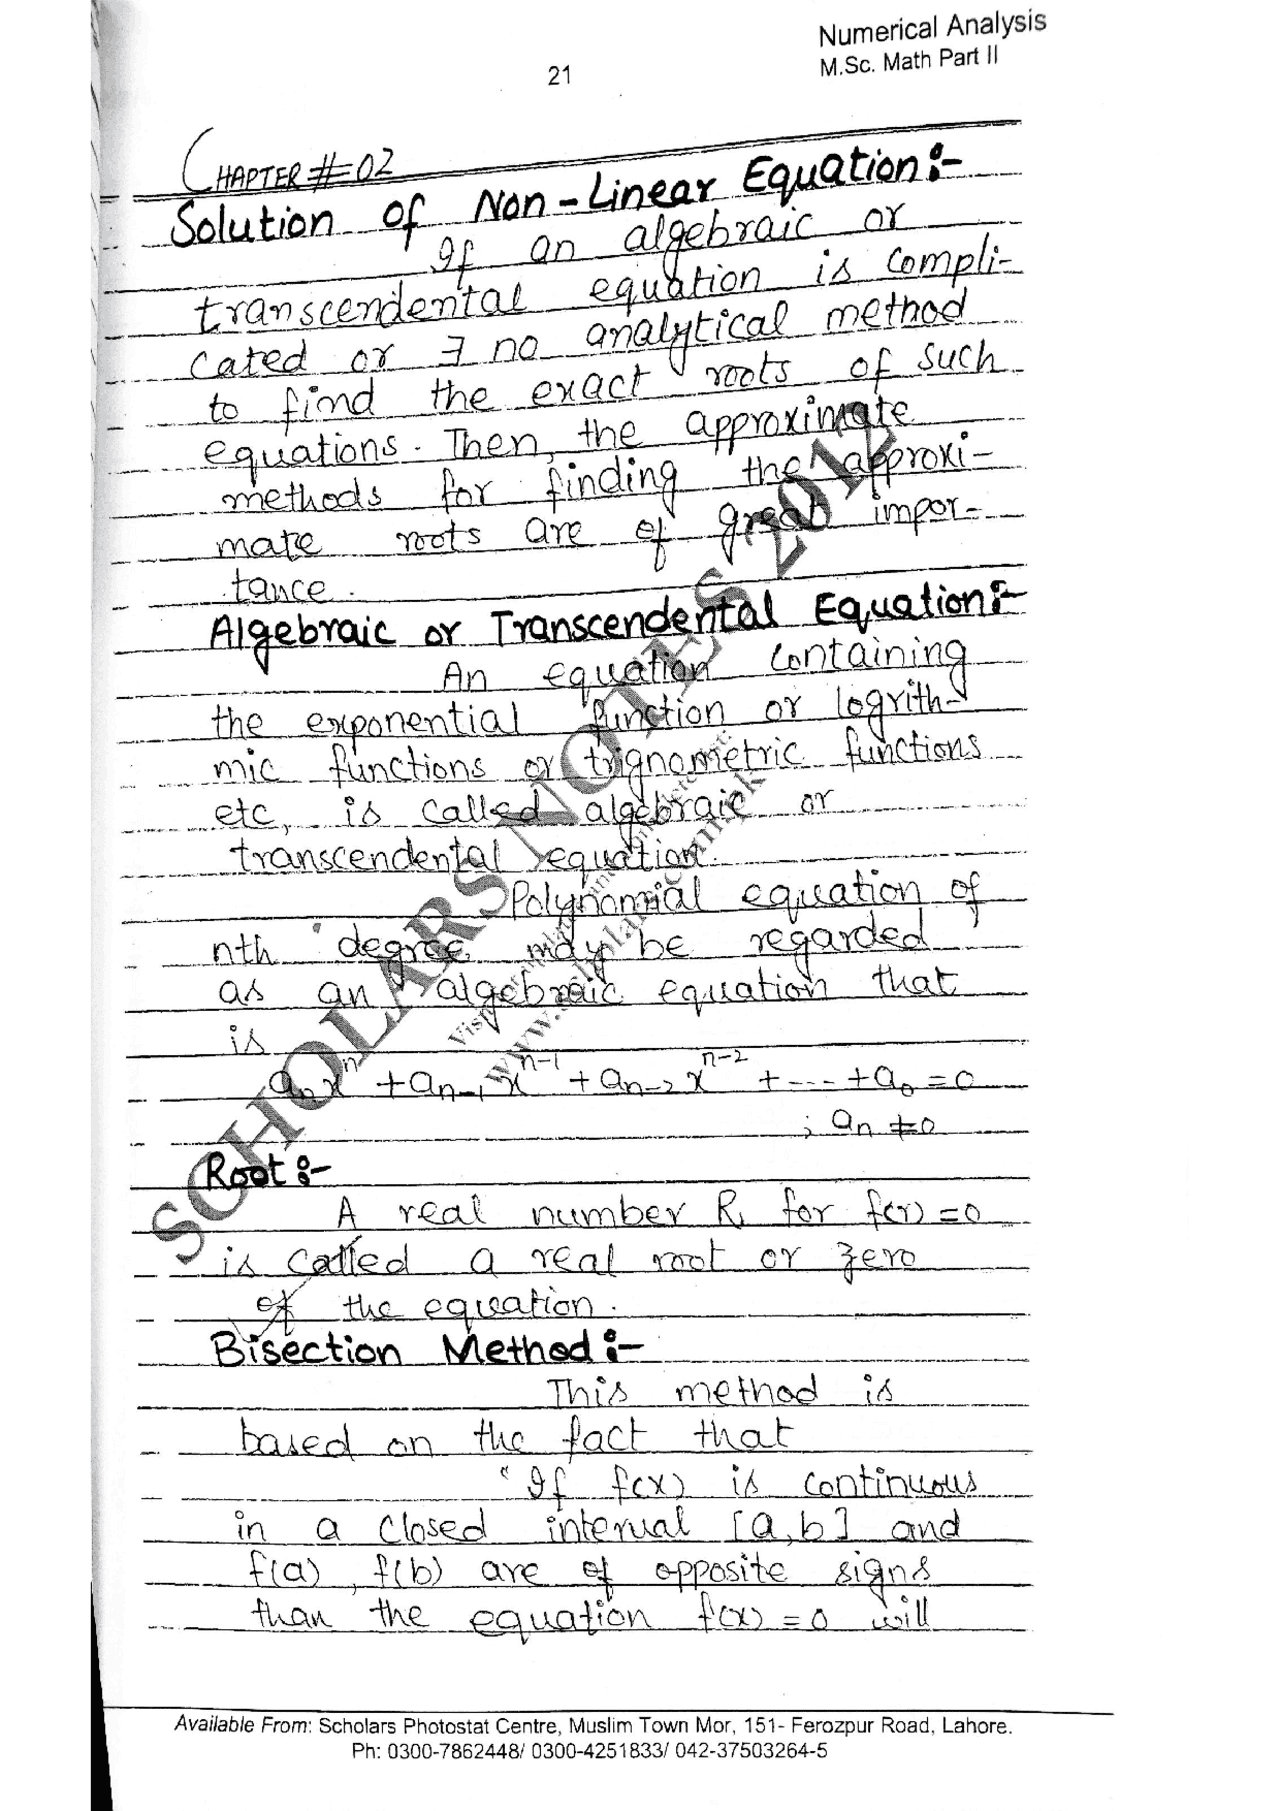 Numerical Analysis
M.Sc. Math Part II
21
CHAPTER # 02
Solution of Non-Linear Equation:-
If an algebraic or
transcendental equation is compli-
cated or ∃ no analytical method
to find the exact roots of such
equations. Then, the approximate
methods for finding the approxi-
mate roots are of great impor-
tance.
Algebraic or Transcendental Equation:-
An equation containing
the exponential function or logrith-
mic functions or trignometric functions
etc, is called algebraic or
transcendental equation.
Polynomial equation of
nth degree may be regarded
as an algebraic equation that
is
aₙxⁿ + aₙ₋₁xⁿ⁻¹ + aₙ₋₂xⁿ⁻² + --- + a₀ = 0
; aₙ ≠ 0
Root:-
A real number R, for f(r) = 0
is called a real root or zero
of the equation.
Bisection Method:-
This method is
based on the fact that
"If f(x) is continuous
in a closed interval [a,b] and
f(a), f(b) are of opposite signs
than the equation f(x) = 0 will
SCHOLARS NOTES 2012
Available From: Scholars Photostat Centre, Muslim Town Mor, 151- Ferozpur Road, Lahore.
Ph: 0300-7862448/ 0300-4251833/ 042-37503264-5